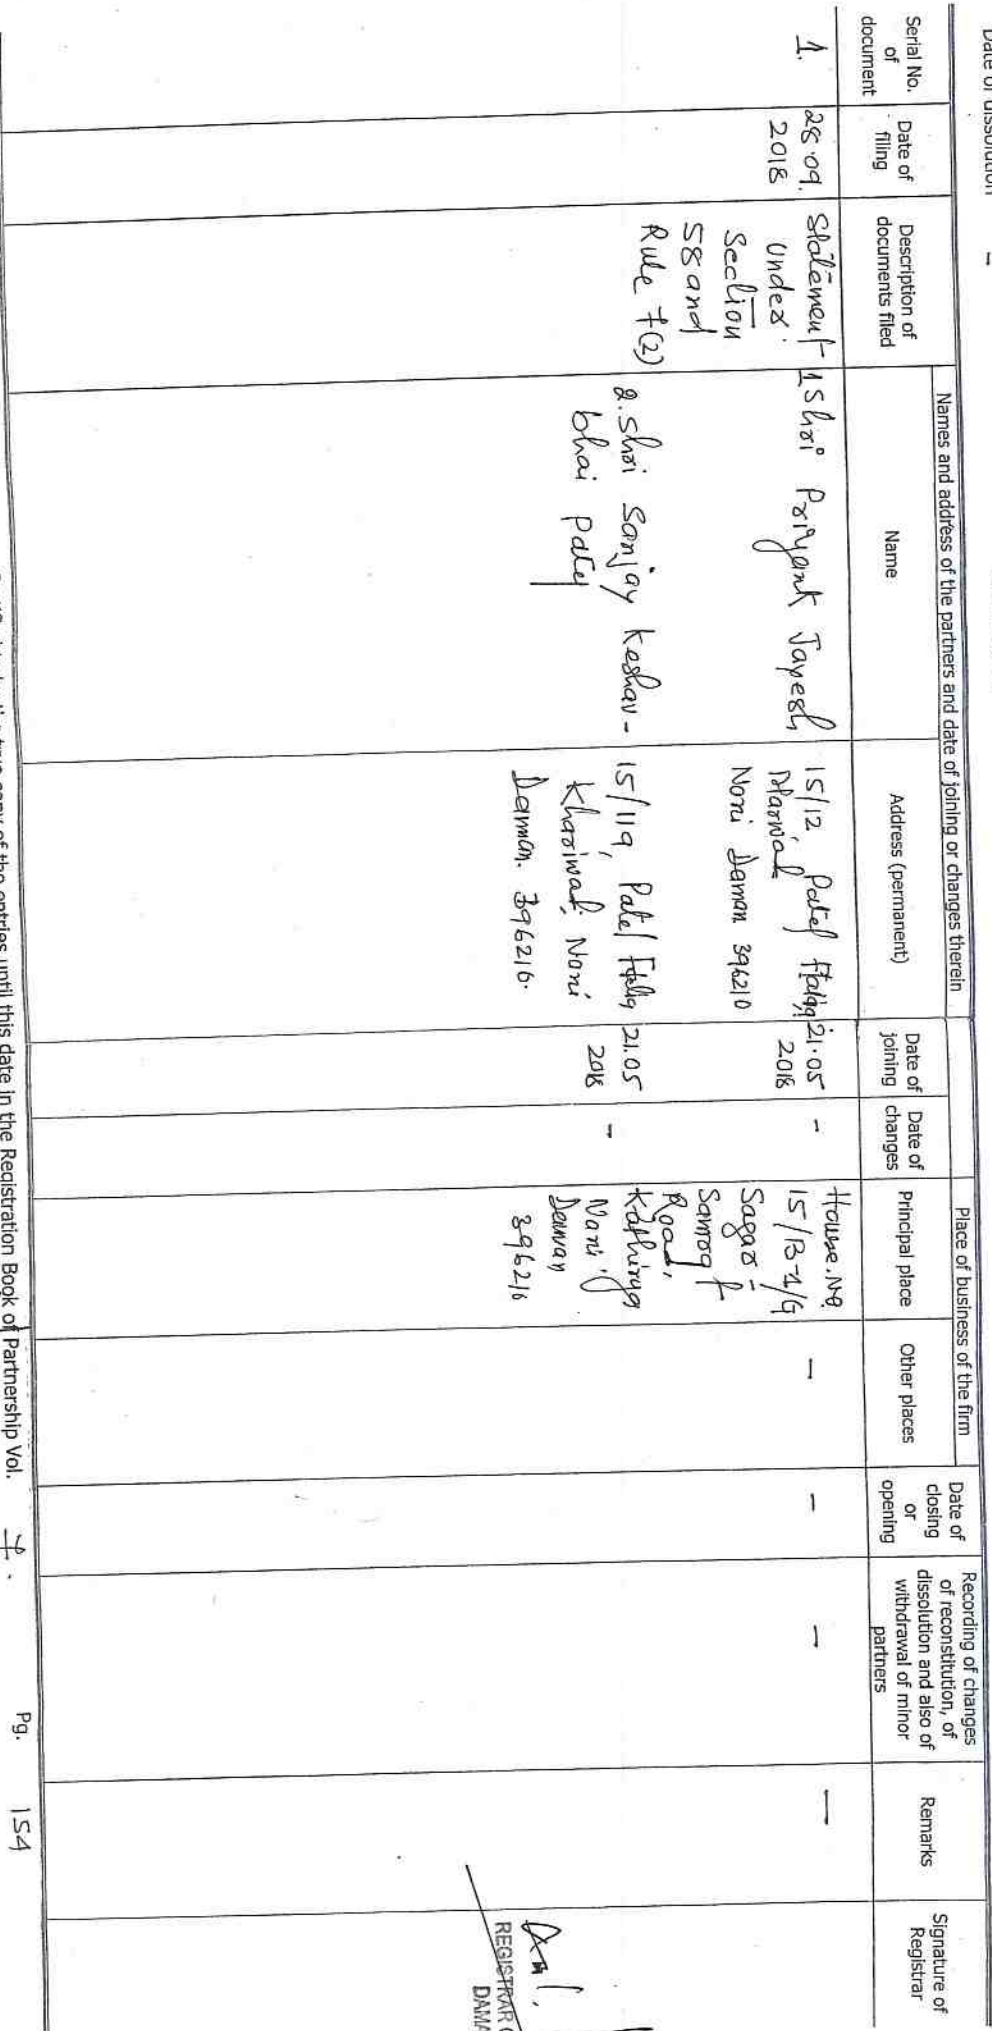 Date of dissolution -
Serial No. of document
Date of filing
Description of documents filed
Names and address of the partners and date of joining or changes therein
Name
Address (permanent)
Date of joining
Date of changes
Place of business of the firm
Principal place
Other places
Date of closing or opening
Recording of changes of reconstitution, of dissolution and also of withdrawal of minor partners
Remarks
Signature of Registrar
1.
28.09.
2018
Statement
Under
Section
58 and
Rule 7(2)
1 Shri Priyank Jayesh
15/12, Patel
Nani Daman 396210
21.05
2018
-
2. Shri Sanjay Keshav-
bhai Patel
15/119, Patel
Khariwad, Nani
Daman. 396210.
21.05
2018
-
House.No.
15/B-1/G
Sagar
Road,
Kathirya
Nani
Daman
396210
-
-
-
-
REGISTRAR
DAMA
the true copy of the entries until this date in the Registration Book of Partnership Vol. 7. Pg. 154